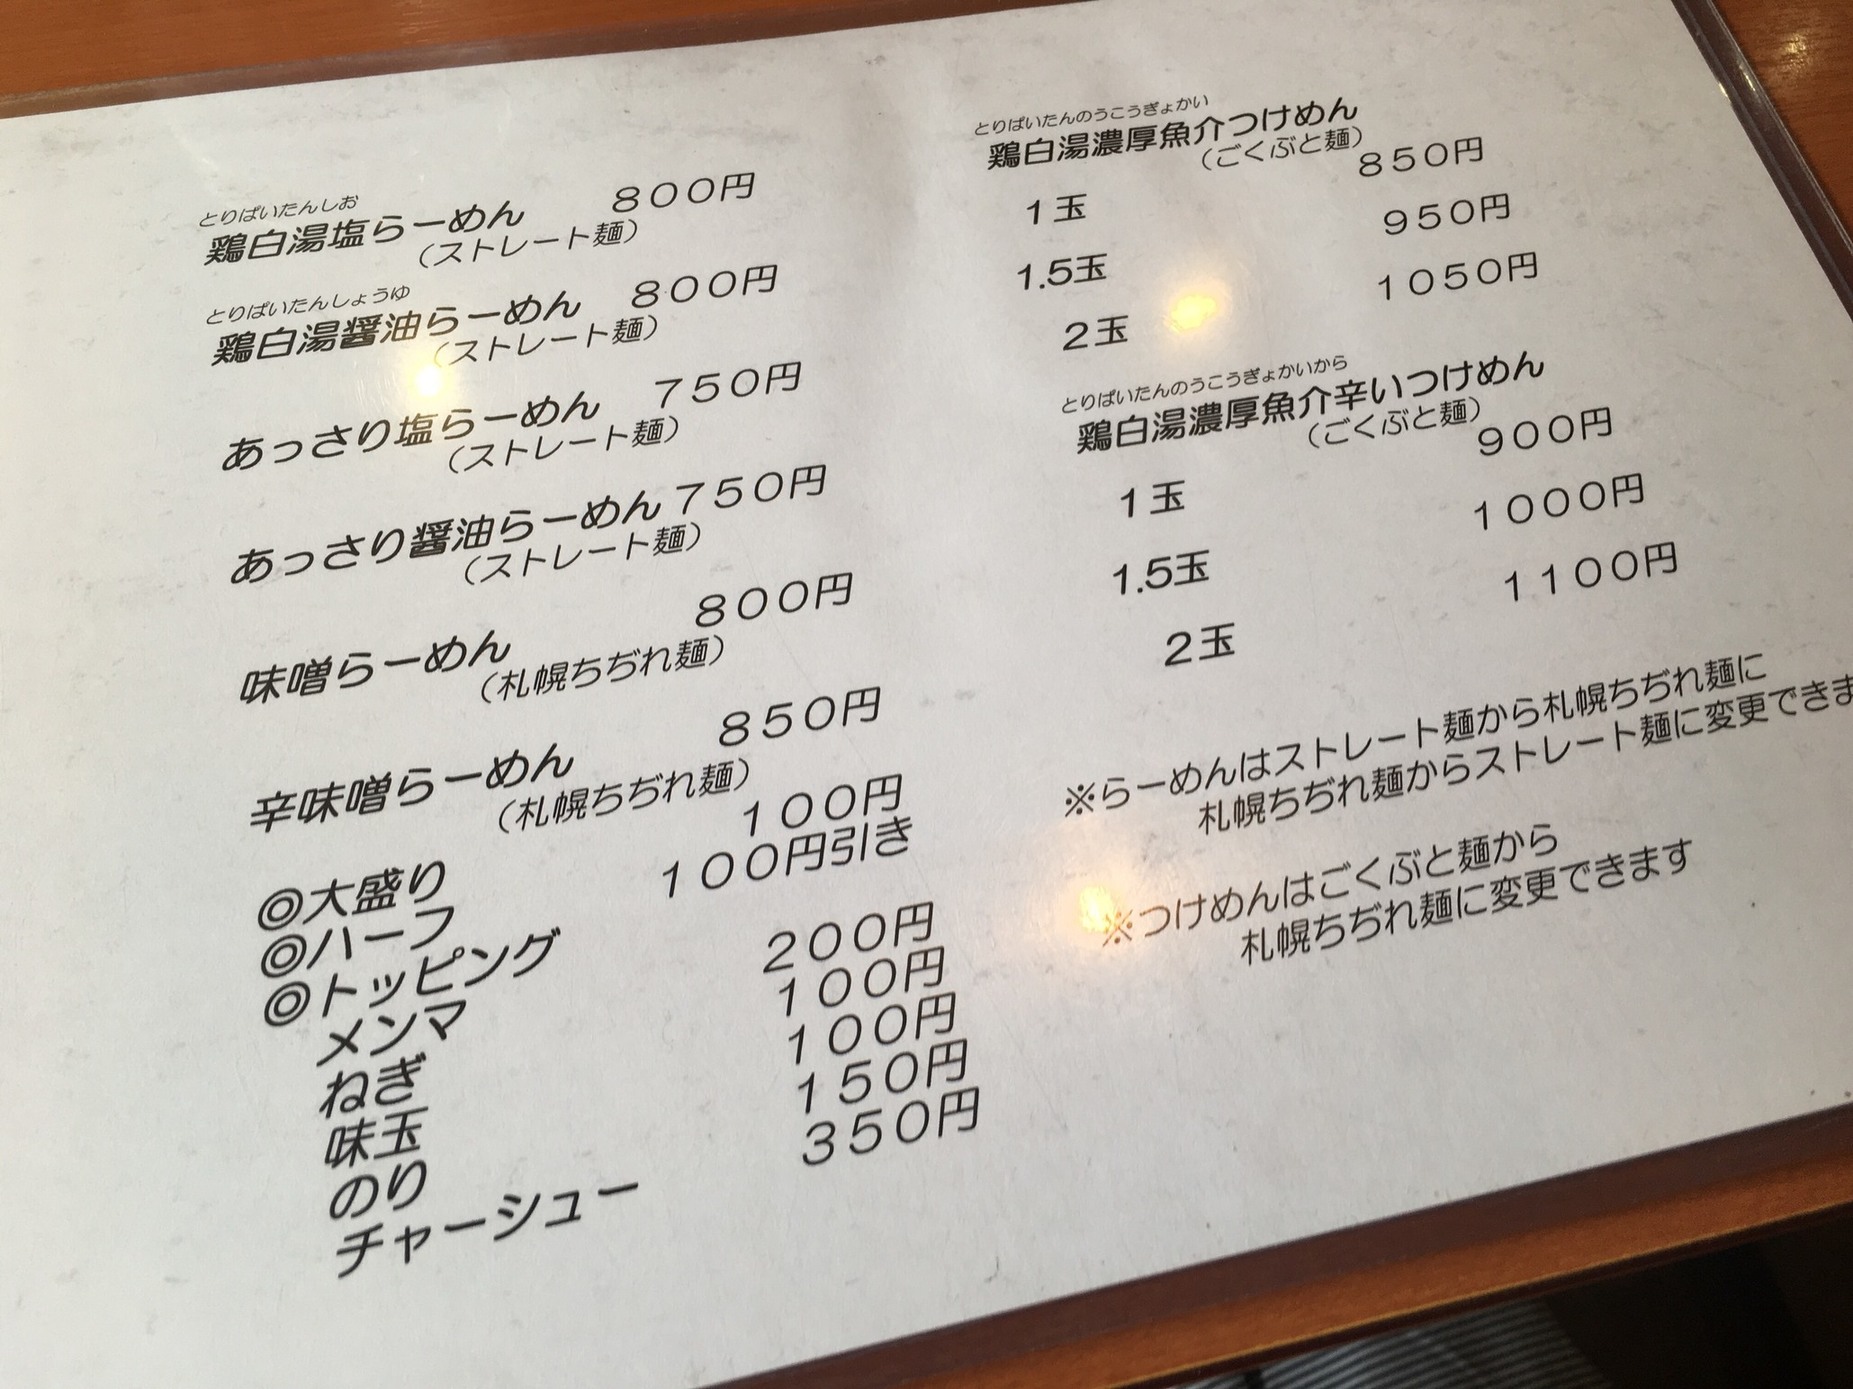 とりぱいたんしお
鶏白湯塩らーめん　８００円
（ストレート麺）
とりぱいたんしょうゆ
鶏白湯醤油らーめん　８００円
（ストレート麺）
あっさり塩らーめん　７５０円
（ストレート麺）
あっさり醤油らーめん７５０円
（ストレート麺）
味噌らーめん　８００円
（札幌ちぢれ麺）
辛味噌らーめん　８５０円
（札幌ちぢれ麺）
◎大盛り　１００円
◎ハーフ　１００円引き
◎トッピング
メンマ　２００円
ねぎ　１００円
味玉　１００円
のり　１５０円
チャーシュー　３５０円
とりぱいたんのうこうぎょかい
鶏白湯濃厚魚介つけめん
（ごくぶと麺）
１玉　８５０円
1.5玉　９５０円
２玉　１０５０円
とりぱいたんのうこうぎょかいから
鶏白湯濃厚魚介辛いつけめん
（ごくぶと麺）
１玉　９００円
1.5玉　１０００円
２玉　１１００円
※らーめんはストレート麺から札幌ちぢれ麺に
札幌ちぢれ麺からストレート麺に変更できま
※つけめんはごくぶと麺から
札幌ちぢれ麺に変更できます